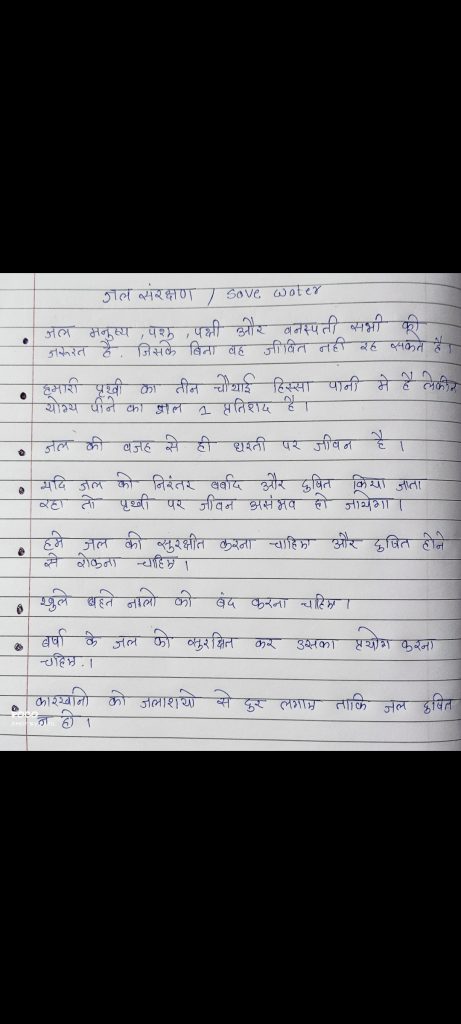 जल संरक्षण / save water
जल मनुष्य, पशु, पक्षी और वनस्पती सभी की
जरूरत है. जिसके बिना वह जीवित नही रह सकते है।
हमारी पृथ्वी का तीन चौथाई हिस्सा पानी मे है लेकीन
योग्य पीने का जल 1 प्रतिशद है।
जल की वजह से ही धरती पर जीवन है।
यदि जल को निरंतर बर्बाद और दुषित किया जाता
रहा तो पृथ्वी पर जीवन असंभव हो जायेगा।
हमे जल को सुरक्षीत करना चाहिए और दुषित होने
से रोकना चाहिए।
खुले बहते नलो को बंद करना चहिए।
बर्षा के जल को सुरक्षित कर उसका प्रयोग करना
चहिए.।
कारखानो को जलाशयो से दुर लगाए ताकि जल दुषित
न हो।